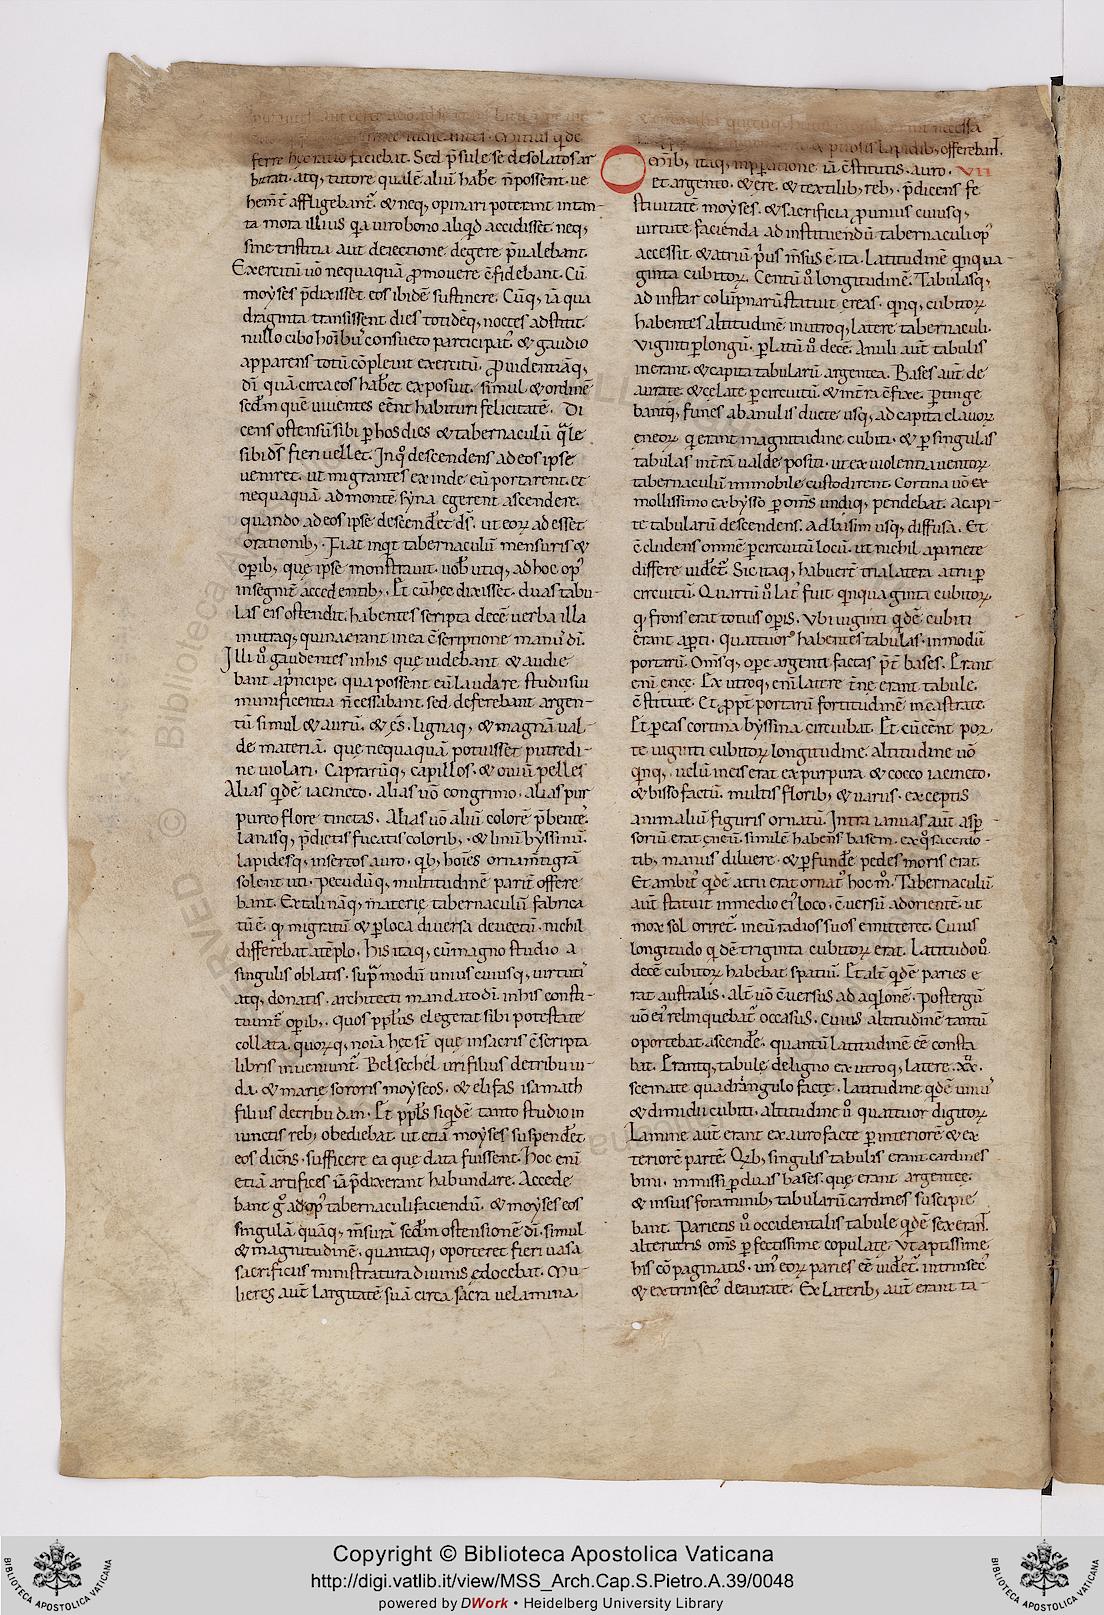 ferre hoc ratio faciebat. Sed p̄sule se desolatos ar
bitrati. atq; tutore qualē aliū habe n̄ possent. ue
hem̄t affligebant᷑. & neq; opinari poterant in tan-
ta mora illius q̄a uiro bono aliq̄d accidissēt neq;
sine tristitia aut deiectione degere p̄ualebant.
Exercitū uō nequaquā p̄mouere c̄fidebant. Cū
moyses p̄dixissēt eos ibidē sustinere. Cūq; iā qua
draginta transissent dies totidēq; noctes adstitit.
nullo cibo hoīb; consueto participat᷑. & gaudio
apparens totū cōpleuit exercitū. Prouidentiāq;
dī quā circa eos habēt exposuit. simul & ordinē
sedm quē uiuentes eēnt habituri felicitatē. Di
cens ostensū sibi p hos dies & tabernaculū q̄le
sibi ds̄ fieri uellet. In q̊ descendens ad eos ipse
ueniret. ut migrantes ex inde eū portarent. et
nequaquā ad montē syna egerent ascendere.
quando ad eos ipse descendēt ds̄. ut eoꝝ adesset
orationib;. Fiat inq̄t tabernaculū mensuris &
opib; quę ipse monstrauit. uob̄ utiq; ad hoc op᷒
insegnit̄ accedentib;. Et cū hęc dixisset. duas tabu-
las eis ostendit. habentes scripta decē uerba illa
in utraq; quina erant in ea c̄scriptione manu᷒ dī.
Illi ū gaudentes in his quę uidebant & audie
bant a p̄ncipe. qua possent eū laudare studii sui
munificentia n̄ cessabant. sed deferebant argen-
tū simul & aurū. & ęs. lignaq; & magnā ual-
de materiā. quę nequaquā potuisset putredi-
ne uiolari. Caprarūq; capillos. & ouiū pelles
Alias q̄dē iacincto. alias uō congrimo. alias pur
pureo flore tinctas. Alias uō aliū colorē p̄bentes.
Lanasq; p̄dictis fucatis colorib;. & linū byssinū.
lapidesq; insertos auro. q̄b; hoīes ornam̄ti grā
solent uti. Pecudūq; multitudinē parit̄ offere
bant. Ex tali nāq; materię tabernaculū fabrica
tū ē. q᷒ migratū & p loca diuersa deuectū. nichil
differebat a tēplo. His itaq; cū magno studio a
singulis oblatis. sup̄ modū unius cuiusq; uirtutis
atq; donatis. architecti mandato dī. in his consti-
tuunt᷑ opib;. quos ppl̄us elegerat sibi potestate
collata. quoꝝq; noīa hęc st̄ quę in sacris c̄scripta
libris inueniunt᷑. Belsechel uri filius de tribu iu-
da. & marię sororis moyseos. & elifas isamath
filius de tribu dan. Et ppl̄s siq̄dē tanto studio in
iunctis reb; obediebat. ut etiā moyses suspendēt
eos dicēns. sufficere ea quę data fuissent. Hoc enī
etiā artifices iā p̄dixerant habundare. Accede
bant g̊ ad op᷒ tabernaculi faciendū. & moyses eos
singulā quāq; m̄surā sedm ostensionē dī. simul
& magnitudinē. quantaq; oporteret fieri uasa
sacrificiis ministratura diuinis edocebat. Mu-
lieres aut̄ largitatē suā circa sacra uelamina
offerebant.
Omīb; itaq; imp̄paratione iā c̄stitutis. auro. VII
et argento. & ere. & textilib; reb;. p̄dicens fe
stiuitatē moyses. & sacrificia p unius cuiusq;
uirtute facienda ad instituendū tabernaculi op᷒
accessit. & atriū p̄us m̄sus ē ita. Latitudinē q̄nqua-
ginta cubitoꝝ. Centū ū longitudinē. Tabulasq;
ad instar colūpnarū statuit ereas. q̄nq; cubitoꝝ
habentes altitudinē in utroq; latere tabernaculi.
Viginti p longū. p latū ū decē. Anuli aut̄ tabulis
inerant. & capita tabularū argentea. Bases aut̄ de
aurate. & celate p circuitū. & int̄ra c̄fixe. Ptinge
bantq; funes ab anulis ducte usq; ad capita clauoꝝ
eneoꝝ q̄ erant magnitudine cubiti. & p singulis
tabulas int̄rā ualde positi. ut ex uiolentia uentoꝝ
tabernaculū immobile custodirent. Cortina uō ex
mollissimo ex bysso p om̄s undiq; pendebat. A capi-
te tabularū descendens. ad basim usq; diffusa. Et
c̄cludens omnē p circuitū locū. ut nichil a pariete
differe uidet᷑. Sic itaq; habuer̄t tria latera atrii p
circuitū. Quartū ū lat᷒ fuit q̄nquaginta cubitoꝝ.
q᷒ frons erat totius opis. Vbi uiginti q̄dē cubiti
erant apti. quattuor habentes tabulas. in modū
portarū. Om̄sq; ope argenti factas p̄t bases. Erant
enī eneę. Ex utroq; enī latere t̄ne erant tabule
c̄stitute. Et ppt̄ portarū fortitudinē in castrate.
Et p eas cortina byssina circuibat. Et cū eēnt por
te uiginti cubitoꝝ longitudine. altitudine uō
q̄nq; uelū in eis erat ex purpura & cocco iacincto.
& bisso factū. multis florib; & uariis. exceptis
animaliū figuris ornatū. Intra ianuas aut̄ asp
soriū erat ęneū. similē habens basem. ex q̊ sacerdo-
tib; manus diluere. & pfundē pedes moris erat.
Et ambit᷒ q̄dē atrii erat ornat᷒ hoc m̊. Tabernaculū
aut̄ statuit in medio ei᷒ loco. c̄uersū ad orientē. ut
mox sol oriret᷑. in eū radios suos emitteret. Cuius
longitudo q̄dē triginta cubitoꝝ erat. Latitudo ū.
decē cubitoꝝ habebat spatiū. Et alt̄ q̄dē paries e
rat australis. alt̄ uō c̄uersus ad aq̄lonē. postergū
uō ei᷒ relinquebat᷑ occasus. cuius altitudinē tantū
oportebat ascendē. quantū latitudinē eē consta
bat. Erantq; tabulę de ligno ex utroq; latere. xx.
scemate quadrangulo factę. Latitudine q̄dē uni᷒
& dimidii cubiti. altitudine ū quattuor digitoꝝ
Lamine aut̄ erant ex auro facte p interiorē & ex
teriorē partē. Q̄b; singulis tabulis erant cardines
bini. inmissi p duas bases. quę erant argenteę.
& in suis foraminib; tabularū cardines suscipie
bant. Parietis ū occidentalis tabule q̄dē sex erant.
alterutris om̄s pfectissime copulate. Vt aptissime
his cōpaginatis. un᷒ eoꝝ paries eē uidet᷑. intrinsec᷒
& extrinsec᷒ deaurate. Ex laterib; aut̄ erant ta-
Copyright © Biblioteca Apostolica Vaticana
http://digi.vatlib.it/view/MSS_Arch.Cap.S.Pietro.A.39/0048
powered by DWork • Heidelberg University Library
BIBLIOTECA APOSTOLICA VATICANA
BIBLIOTECA APOSTOLICA VATICANA